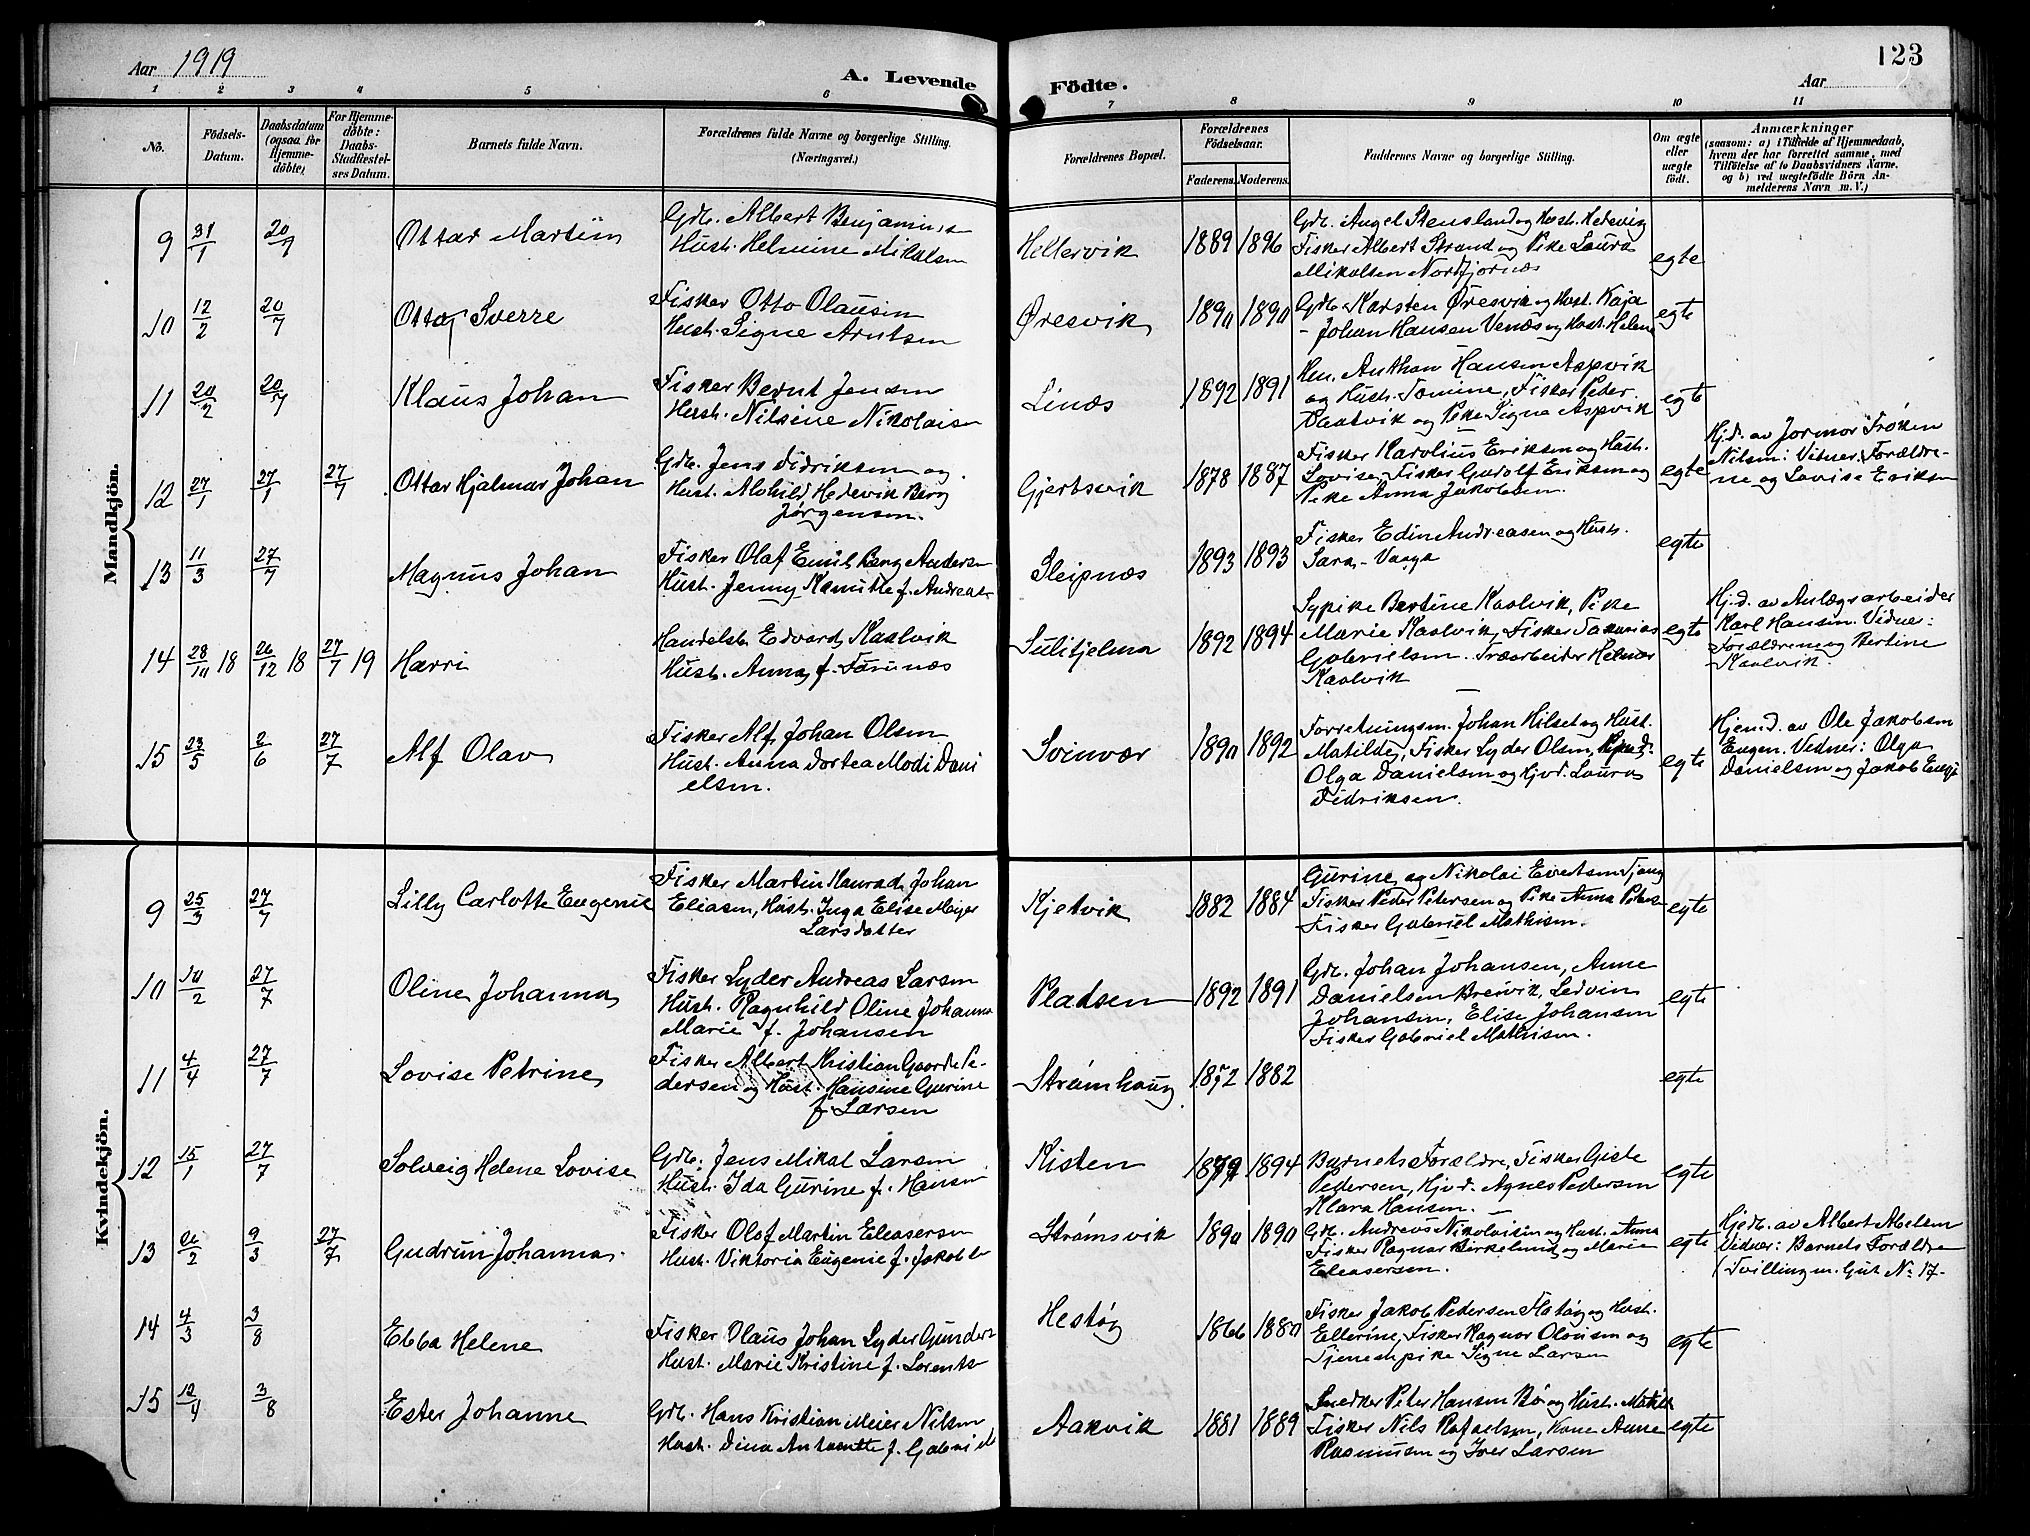 Aar 1919
A. Levende Födte.
Aar
123
1 2 3 4 5 6 7 8 9 10 11
No.
Födsels-
Datum.
Daabsdatum
(ogsaa for
Hjemme-
döbte)
For Hjemme-
döbte:
Daabs-
Stadfæstel-
ses Datum.
Barnets fulde Navn.
Forældrenes fulde Navne og borgerlige Stilling.
(Næringsvei.)
Forældrenes Bopæl.
Forældrenes
Födselsaar.
Faderens. Moderens.
Faddernes Navne og borgerlige Stilling.
Om ægte
eller
uægte
födt.
Anmærkninger
(saasom: a) i Tilfælde af Hjemmedaab,
hvem der har forrettet samme, med
Tilföielse af to Daabsvidners Navne.
og b) ved uægtefödte Börn An-
melderens Navn m. V.)
Mandkjön.
9 31/1 20/7 Ottar Martin
Gdb. Albert Benjaminsn
Hust. Helmine Mikalsen
Hellervik 1889 1896
Gdb. Angel Stensland og Hust. Hedevig
Fisker Albert Strand og Pike Laura
Mikalsen Nordfjornæs
egte
10 12/2 20/7 Ottar Sverre
Fisker Otto Olausen
Hust. Signe Arntsen
Øresvik 1890 1890
Gdb. Karsten Øresvik og Hust. Kaja
- Johan Hansen Venæs og Hust. Helene
egte
11 20/2 20/7 Klaus Johan
Fisker Bernt Jensen
Hust. Nilsine Nikolaisen
Linæs 1892 1891
Anthon Hansen Aspvik
og Hust. Tomine, Fisker Peder
og Pike Signe Aspvik
egte
12 27/1 27/1 27/7 Ottar Hjalmar Johan
Gdb. Jens Didriksen og
Hust. Alvhild Hedevik Berg
Jørgensen.
Gjertsvik 1878 1887
Fisker Karolius Eriksen og Hust.
Lovise, Fisker Gudolf Eriksen og
Pike Anna Jakobsen.
egte
Hj.d. av Jormor Frøken
Nilsen: Vitner: Forældre-
ne og Lovise Eriksen
13 11/3 27/7 Magnus Johan
Fisker Olaf Emil Berg Andersn
Hust. Jenny Kamitle f. Andreasn
Sleipnæs 1893 1893
Fisker Edin Andreasen og Hust.
Sara - Vaaga
egte
14 28/10 18 26/12 18 27/7 19 Harri
Handelsb. Edvard Kaalvik
Hust. Anna f. Torunæs
Sulitjelma 1892 1894
Sypike Bertine Kaalvik, Pike
Marie Kaalvik, Fisker Sakarias
Gabrielsen. Træarbeider Helmer
Kaalvik
egte
Hj.d. av Anlægsarbeider
Karl Hansen. Vidner:
Forældrene og Bertine
Kaalvik.
15 23/5 2/6 27/7 Alf Olav
Fisker Alf Johan Olsen
Hust. Anna Dortea Modi Dani
elsen.
Svinvær 1890 1892
Forretningsm. Johan Hilset og Hust.
Matilde, Fisker Lyder Olsen,
Olga Danielsen og Hjvd. Laura
Didriksen.
egte
Hjemd. av Ole Jakobsen
Eugen. Vedner: Olga
Danielsen og Jakob
Kvindekjön.
9 25/3 27/7 Lilly Carlotte Eugenie
Fisker Martin Konrad Johan
Eliasen, Hust. Inga Elise Meyer
Larsdatter
Kjetvik 1882 1884
Gurine og Nikolai Evertsen Tjong
Fisker Peder Petersen og Pike Anna Peters
Fisker Gabriel Mathisen.
egte
10 10/2 27/7 Oline Johanna
Fisker Lyder Andreas Larsen
Hust. Ragnhild Oline Johanna
Marie f. Johansen
Pladsen 1892 1891
Gdb. Johan Johansen, Anne
Danielsen Breivik, Ledvin
Johansen, Elise Johansen
Fisker Gabriel Mathisen.
egte
11 4/4 27/7 Lovise Petrine
Fisker Albert Kristian Gaarde Pe-
dersen og Hust. Hansine Gurine
f. Larsen
Strømhaug 1872 1882
egte
12 15/1 27/7 Solveig Helene Lovise
Gdb. Jens Mikal Larsen
Hust. Ida Gurine f. Hansen
Kisten 1879 1894
Barnets Forældre, Fisker Giste
Pedersen, Hjvd. Agnes Pedersen
Klara Hansen.
egte
13 26/2 9/3 27/7 Gudrun Johanna.
Fisker Olaf Martin Eleasersen
Hust. Viktoria Eugenie f. Jakobsn
Strømsvik 1890 1890
Gdb. Andreas Nikolaisen og Hust. Anna
Fisker Ragnar Birkelund og Marie
Eleasersen.
egte
Hjdb. av Albert Abelsen
Vidner: Barnets Forældre
(Tvilling m. Gut No 17.
14 4/3 3/8 Ebba Helene
Fisker Olaus Johan Lyder Gunders
Hust. Marie Kristine f. Lorents
Hestøy 1866 1880
Fisker Jakob Pedersen Flatøy og Hust.
Ellerine, Fisker Ragnar Olausen og
Tjenestpike Signe Larsen
egte
15 12/4 3/8 Ester Johanne
Gdb. Hans Kristian Meier Nilsen
Hust. Dina Antonette f. Gabrielsn
Aakvik 1881 1889
Snedker Peter Hansen Bø og Hust. Matild
Fisker Nils Rafaelsen, Kone Anne
Rasmussen og Iver Larsen
egte